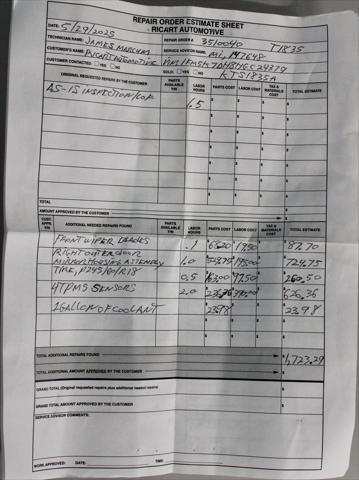 REPAIR ORDER ESTIMATE SHEET -
RICART AUTOMOTIVE
DATE: 5/29/2025
REPAIR ORDER # 3510040 T1835
TECHNICIAN NAME: JAMES
SERVICE ADVISOR NAME: Mi, 147648
CUSTOMER'S NAME: RICART AUTOMOTIVE
CUSTOMER CONTACTED: YES NO
SOLD: YES NO KTS1835A
ORIGINAL REQUESTED REPAIRS BY CUSTOMER PARTS AVAILABLE Y/N LABOR HOURS PARTS COST LABOR COST TAX & MATERIALS COST TOTAL ESTIMATE
AS-IS INSPECTION/ 1.5
TOTAL
AMOUNT APPROVED BY THE CUSTOMER
CUST. APPR. Y/N ADDITIONAL NEEDED REPAIRS FOUND PARTS AVAILABLE Y/N LABOR HOURS PARTS COST LABOR COST TAX & MATERIALS COST TOTAL ESTIMATE
FRONT WIPER BLADES .1 17.50 82.70
RIGHT OUTER DOOR
MIRROR HOUSING ASSEMBLY 1.0 724.75
TIRE, P245/60/R18 0.5 97.50 260.50
4 TPMS SENSORS 2.0 626.36
1 GALLON OF COOLANT 23.98 23.98
TOTAL ADDITIONAL REPAIRS FOUND 1,723.29
TOTAL ADDITIONAL AMOUNT APPROVED BY THE CUSTOMER
GRAND TOTAL (Original requested repairs plus additional needed repairs)
GRAND TOTAL AMOUNT APPROVED BY THE CUSTOMER
SERVICE ADVISOR COMMENTS:
WORK APPROVED: DATE: TIME: